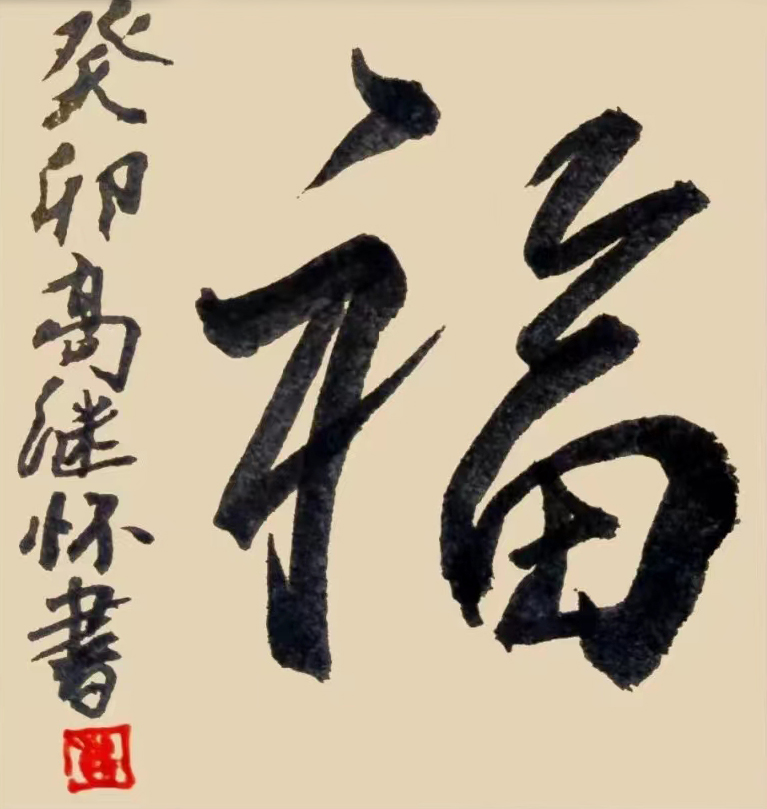 福
癸卯高继怀书